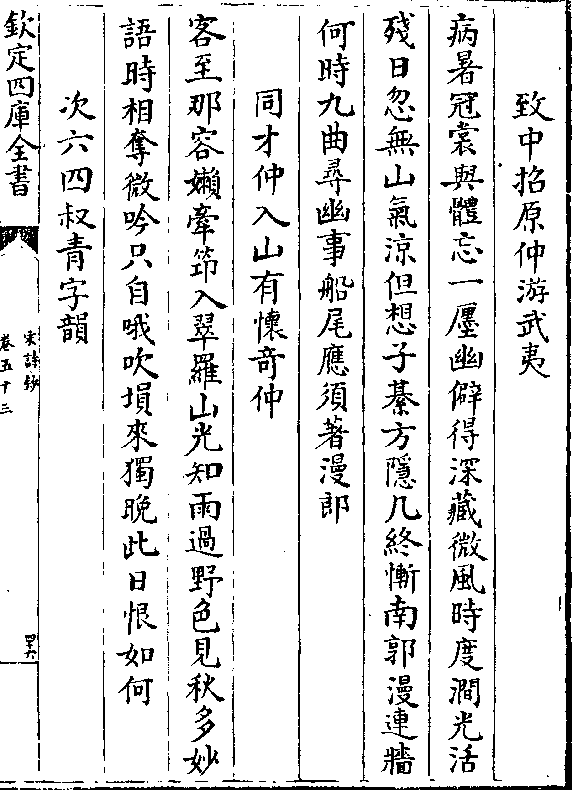 致中招原仲游武夷
病暑冠裳與體忘一廛幽僻得深藏微風時度澗光活
殘日忽無山氣涼但想子綦方隱几終慚南郭漫連牆
何時九曲尋幽事船尾應須著漫郎
同才仲入山有懷奇仲
客至那容嬾牽筇入翠羅山光知雨過野色見秋多妙
語時相奪微吟只自哦吹塤來獨晚此日恨如何
次六四叔青字韻
欽定四庫全書
宋詩鈔
卷五十三